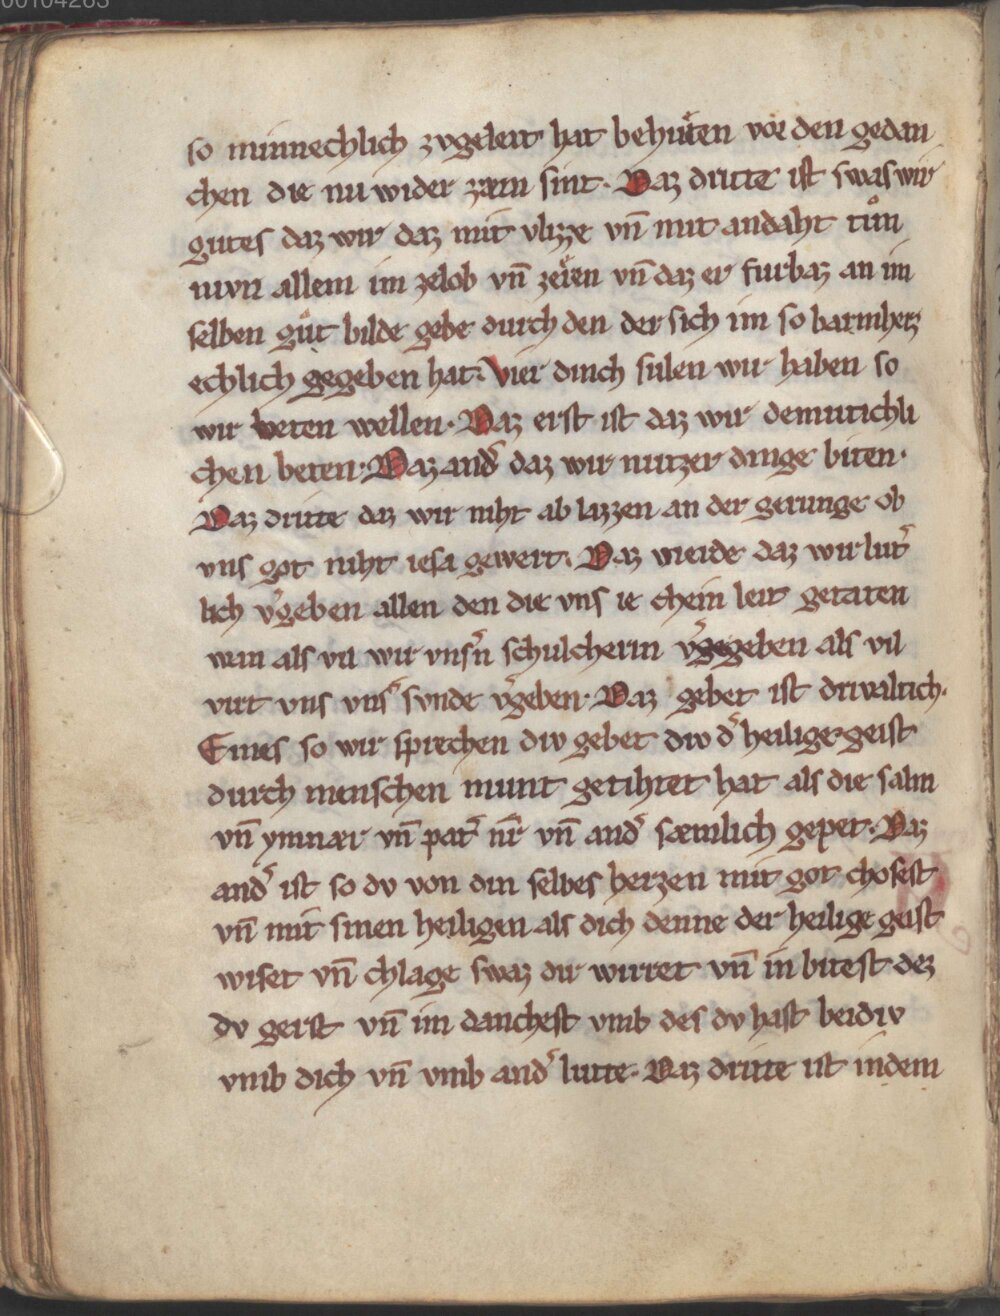 00104263
so minnechlich zvgeleit hat behuͤten vor den gedan
chen die nu wider zæm sint. Daz dritte ist swas wir
gutes daz wir daz mit vlizze vn̄ mit andaht tuͦn
nivn allem im zelob vn̄ zeren vn̄ daz er furbaz an im
selben guͦt bilde gebe durch den der sich im so barmherz
echlich gegeben hat. Vier dinch sulen wir haben so
wir beten wellen. Daz erst ist daz wir demutichli
chen beten. Daz and͛ daz wir nutzer dinge biten.
Daz dritte daz wir niht ab lazzen an der gerunge ob
vns got niht iesa gewert. Daz vierde daz wir lut͛
lich v͛geben allen den die vns ie chein leit getaten
wan als vil wir vns͛n schulcherin v͛gegeben als vil
virt vns vns͛ svnde v͛geben. Daz gebet ist drivaltich.
Eines so wir sprechen div gebet div d͛ heilige geist
durch menschen munt getihtet hat als die salm
vn̄ ymnær vn̄ pat͛ nr̄ vn̄ and͛ sæmlich gepet. Daz
and͛ ist so dv von din selbes herzen mit got chosest
vn̄ mit sinen heiligen als dich denne der heilige geist
wiset vn̄ chlage swaz dir wirret vn̄ in bitest dez
dv gerst vn̄ im danchest vmb des dv hast beidiv
vmb dich vn̄ vmb and͛ lutte. Daz dritte ist indem